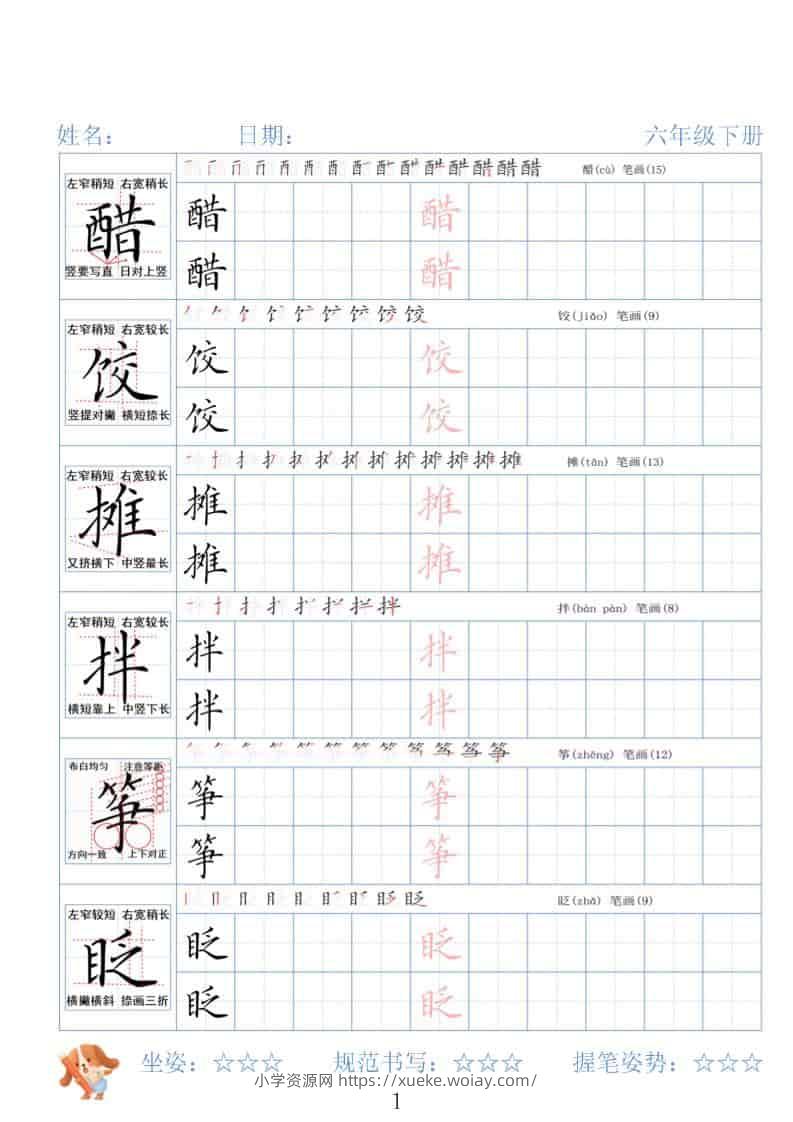 姓名： 日期： 六年级下册
醋(cù) 笔画(15)
左窄稍短 右宽稍长
醋
竖要写直 日对上竖
醋 醋
醋 醋
饺(jiǎo) 笔画(9)
左窄稍短 右宽较长
饺
竖提对撇 横短捺长
饺 饺
饺 饺
摊(tān) 笔画(13)
左窄稍短 右宽较长
摊
又挤横下 中竖最长
摊 摊
摊 摊
拌(bàn pàn) 笔画(8)
左窄稍短 右宽较长
拌
横短靠上 中竖下长
拌 拌
拌 拌
筝(zhēng) 笔画(12)
布白均匀 注意等距
筝
方向一致 上下对正
筝 筝
筝 筝
眨(zhǎ) 笔画(9)
左窄较短 右宽稍长
眨
横撇横斜 捺画三折
眨 眨
眨 眨
坐姿：☆☆☆ 规范书写：☆☆☆ 握笔姿势：☆☆☆
小学资源网 https://xueke.woiay.com/
1